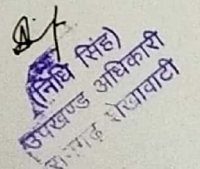 (निधि सिंह)
उपखण्ड अधिकारी
शेखावाटी